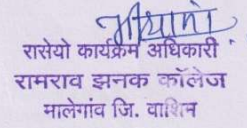 रासेयो कार्यक्रम अधिकारी
रामराव झनक कॉलेज
मालेगांव जि. वाशिम